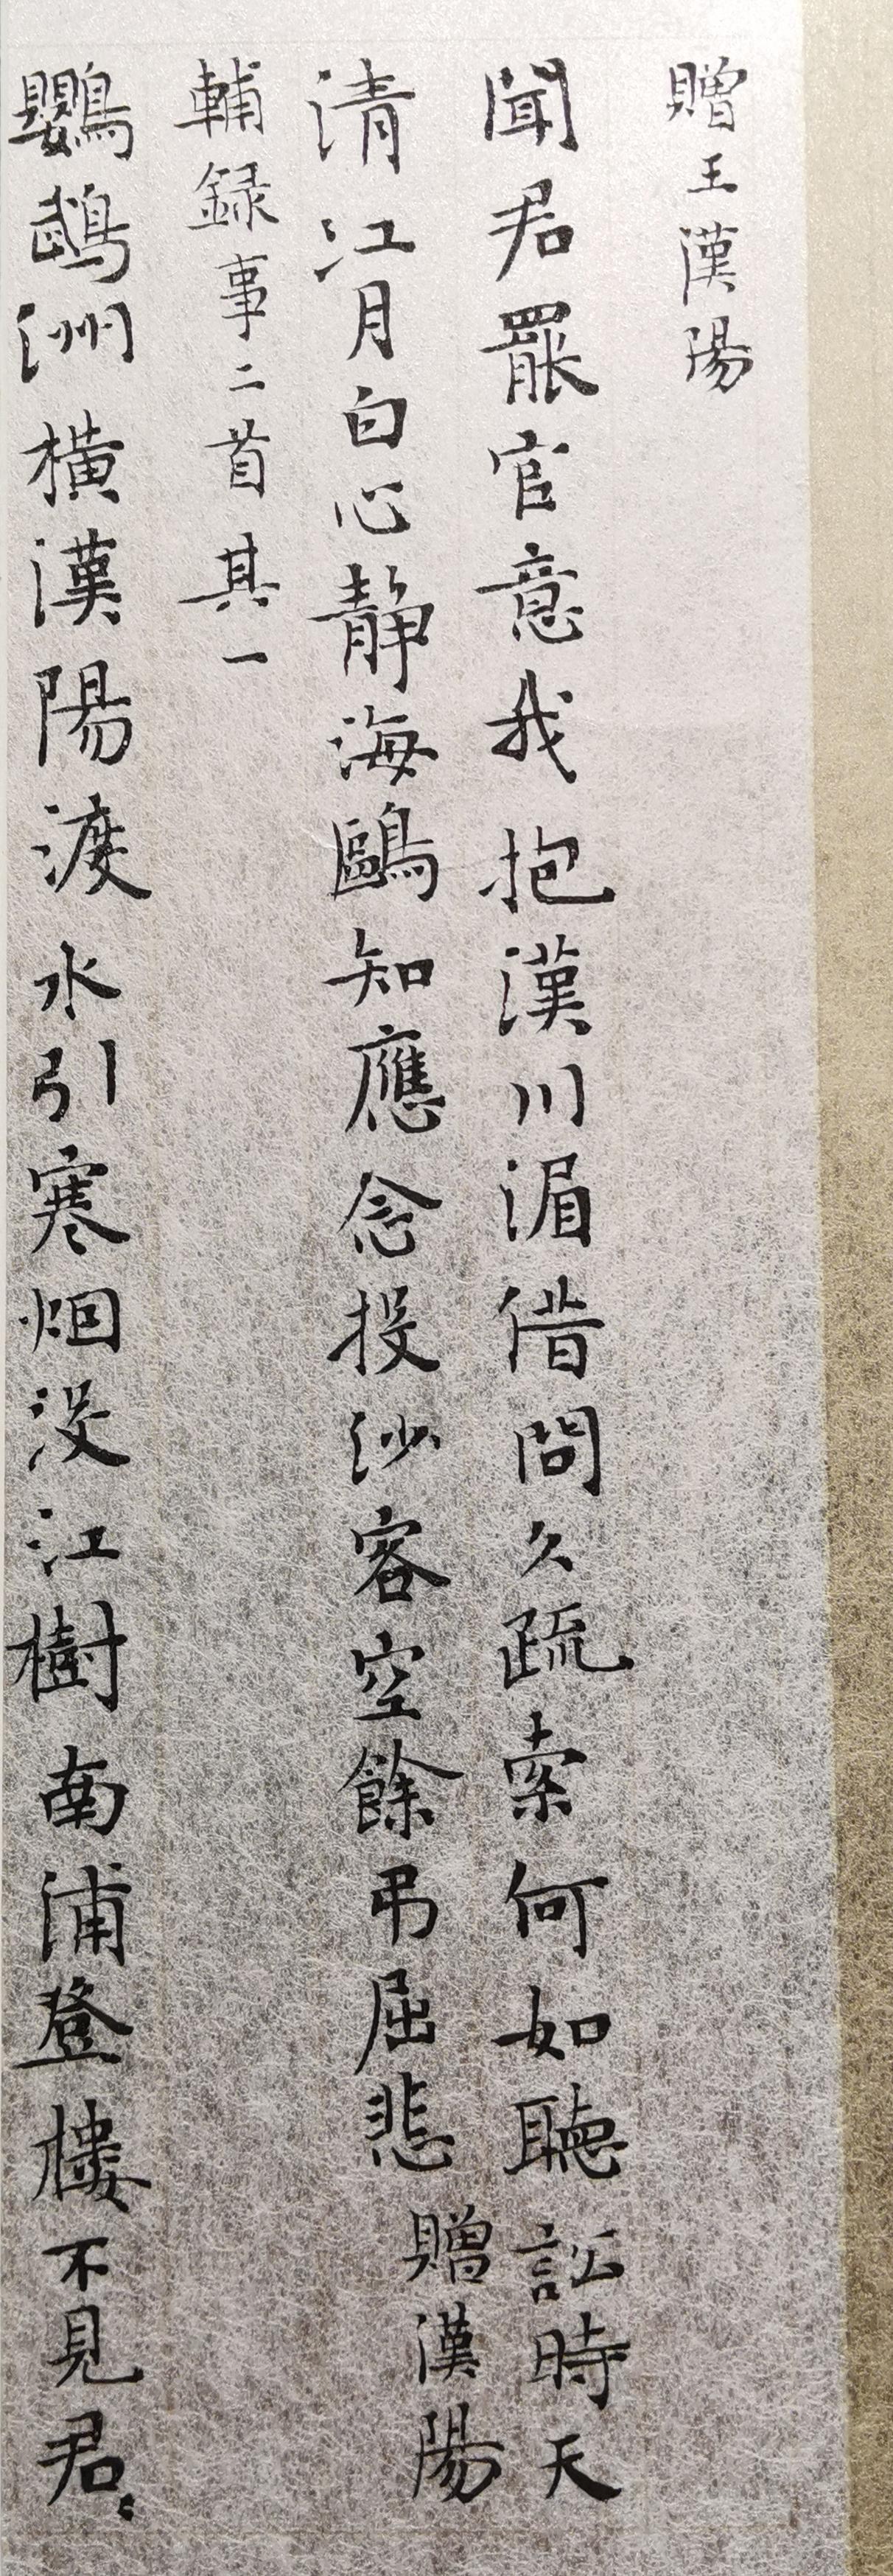 贈王漢陽
聞君罷官意我抱漢川湄借問久疏索何如聽訟時天
清江月白心静海鷗知應念投沙客空餘弔屈悲贈漢陽
輔録事二首其一
鸚鵡洲橫漢陽渡水引寒烟没江樹南浦登樓不見君